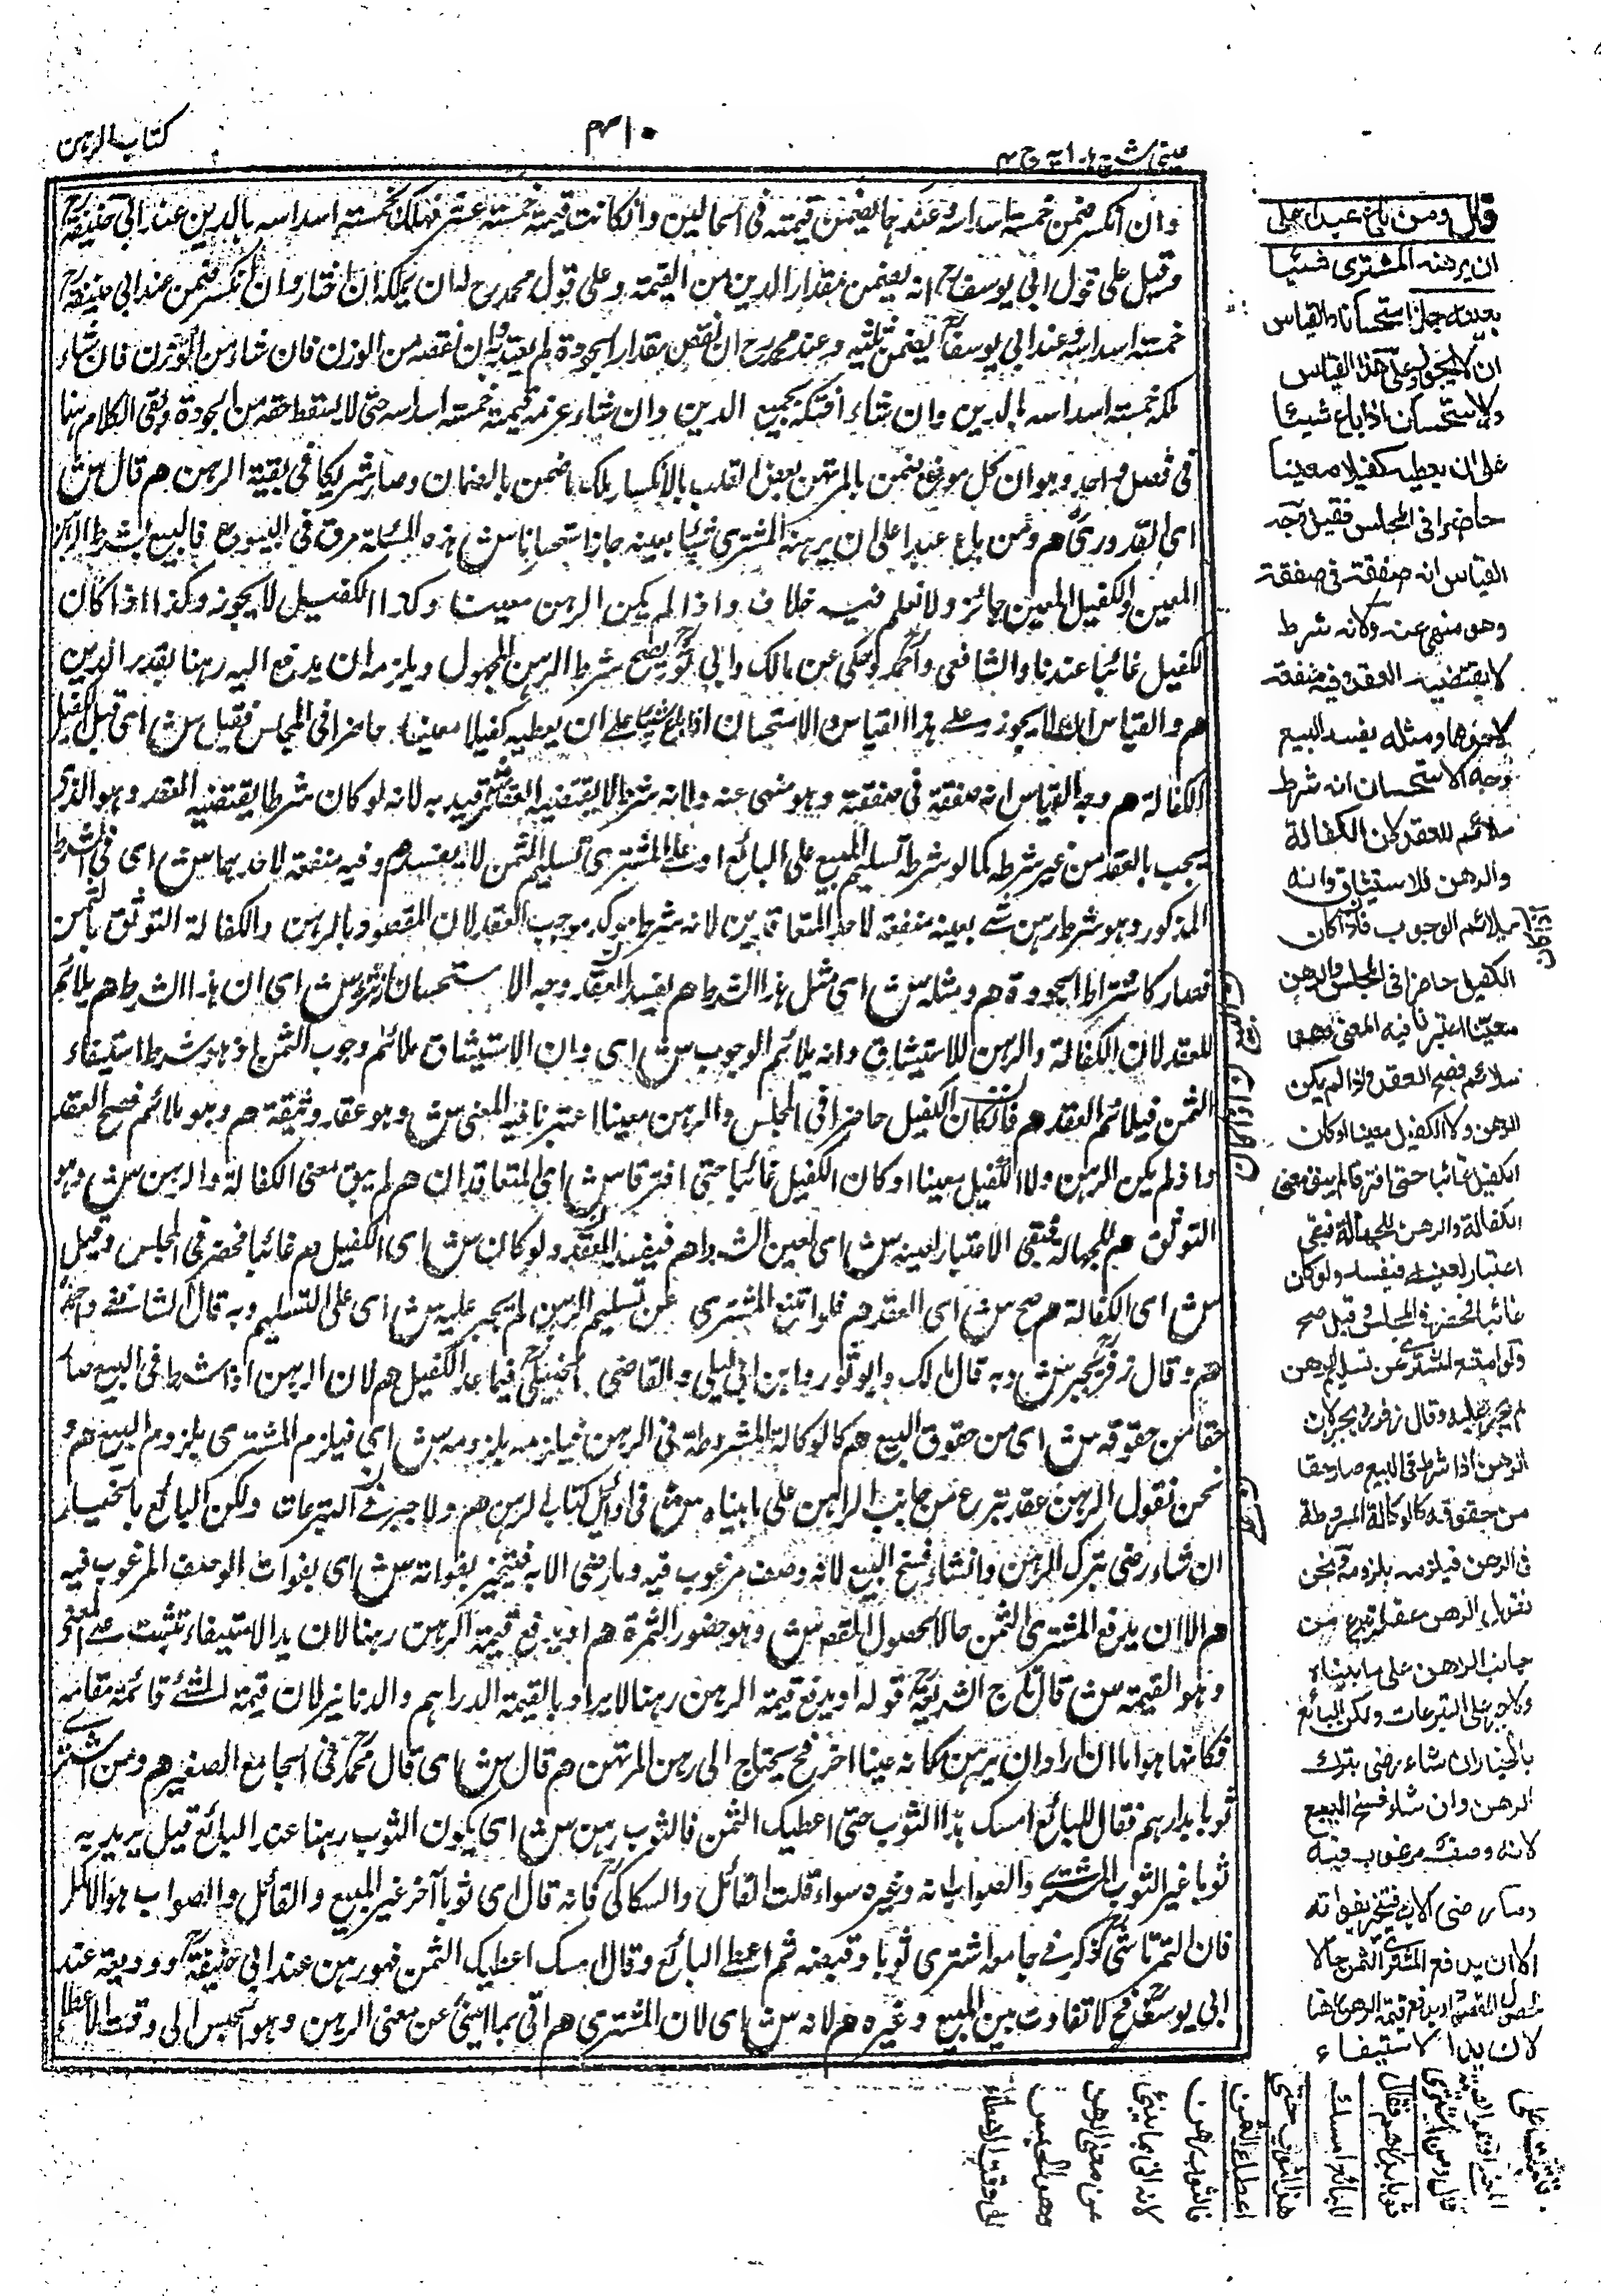 كتاب الرهن
٤١٠
عينى شرح هدايه ج ٤
وان انكسر ضمن خمسة اسداسه وعندهما يضمن قيمته فى الحالين وان كانت قيمته خمسة عشر فهلك بخمسة اسداسه بالدين عند ابى حنيفة رح
وقيل على قول ابى يوسف رح انه يضمن مقدار الدين من القيمة وعلى قول محمد رح له ان يملكه ان اختار وان انكسر ضمن عند ابى حنيفة رح
خمسة اسداسه وعند ابى يوسف رح يضمن ثلثيه وعند محمد رح ان نقص بمقدار الجودة لم يعتد به وان نقصه من الوزن فان شاء
ملكه خمسة اسداسه بالدين وان شاء افتكه بجميع الدين وان شاء غرمه قيمة خمسة اسداسه حتى لا يسقط حقه من الجودة وبقى الكلام هنا
فى فصل واحد وهو ان كل موضع يضمن بالمرتهن بعض القلب بالانكسار يملك ما ضمن بالضمان وصار شريكا فى بقية الرهن هم قال ش
اى القدورى رح هم ومن باع عبدا على ان يرهنه المشترى شيئا بعينه جاز استحسانا ش هذه المسئلة مرت فى البيوع فالبيع بشرط الرهن
المعين والكفيل المعين جائز ولا نعلم فيه خلاف واذا لم يكن الرهن معينا وكذا الكفيل لا يجوز وكذا اذا كان
الكفيل غائبا عندنا والشافعى واحمد رح وحكى عن مالك وابى ثور يصح شرط الرهن المجهول ويلزمه ان يدفع اليه رهنا بقدر الدين
هم والقياس ان لا يجوز وعلى هذا القياس والاستحسان اذا باع شيئا على ان يعطيه كفيلا معينا حاضرا فى المجلس فقبل ش اى قبل الكفيل
الكفالة هم وجه القياس انه صفقة فى صفقة وهو منهى عنه ولانه شرط لا يقتضيه العقد ش قيد به لانه لو كان شرطا يقتضيه العقد وهو الذى
يجب بالعقد من غير شرطه كما لو شرط تسليم المبيع على البائع او على المشترى تسليم الثمن لا يفسد هم وفيه منفعة لاحدهما ش اى فى الشرط
المذكور وهو شرط رهن شئ بعينه منفعة لاحد المتعاقدين لانه شرط يؤكد موجب العقد لان المقصود بالرهن والكفالة التوثق بالثمن
فصار كاشتراط الجودة هم ومثله ش اى مثل هذا الشرط هم يفسد العقد وجه الاستحسان انه شرط ش اى ان هذا الشرط هم يلائم
للعقد لان الكفالة والرهن للاستيثاق وانه يلائم الوجوب ش اى وان الاستيثاق يلائم وجوب الثمن اذ هو شرط استيفاء
الثمن فيلائم العقد هم فاذا كان الكفيل حاضرا فى المجلس والرهن معينا اعتبرنا فيه المعنى ش وهو عقد وثيقة هم وهو ملائم فصح العقد
واذا لم يكن الرهن ولا الكفيل معينا او كان الكفيل غائبا حتى افترقا ش اى المتعاقدان هم لم يبق معنى الكفالة والرهن ش وهو
التوثق هم للجهالة فبقى الاعتبار لعينه ش اى لعين الشرط هم فيفسد العقد ولو كان ش اى الكفيل هم غائبا فحضر فى المجلس وقبل
ش اى الكفالة هم صح ش اى العقد هم فلو امتنع المشترى عن تسليم الرهن لم يجبر عليه ش اى على التسليم وبه قال الشافعى واحمد رح
هم وقال زفر رح يجبر ش وبه قال مالك وابو ثور وابن ابى ليلى والقاضى الحنبلى فيما عدا الكفيل هم لان الرهن اذا شرط فى البيع صار
حقا من حقوقه ش اى من حقوق البيع هم كالوكالة المشروطة فى الرهن فيلزمه بلزومه ش اى فيلزم المشترى بلزوم البيع هم و
نحن نقول الرهن عقد تبرع من جانب الراهن على ما بيناه ش فى اوائل كتاب الرهن هم ولا جبر فى التبرعات ولكن البائع بالخيار
ان شاء رضى بترك الرهن وان شاء فسخ البيع لانه وصف مرغوب فيه وما رضى الا به فيتخير بفواته ش اى بفوات الوصف المرغوب فيه
هم الا ان يدفع المشترى الثمن حالا لحصول المقصود ش وهو حضور الثمرة هم او يدفع قيمة الرهن رهنا لان يد الاستيفاء تثبت على المعنى
وهو القيمة ش قال تاج الشريعة رح قوله او يدفع قيمة الرهن رهنا لا يراد بالقيمة الدراهم والدنانير لان قيمة الشئ قائمة مقامه
فكانها هو اما ان اراد ان يرهن مكانه عينا اخر فح يحتاج الى رهن المرتهن هم قال ش اى قال محمد رح فى الجامع الصغير هم ومن اشترى
ثوبا بدراهم فقال للبائع امسك هذا الثوب حتى اعطيك الثمن فالثوب رهن ش اى يكون الثوب رهنا عند البائع قيل يريد به
ثوبا غير الثوب المشترى والصواب انه وغيره سواء قلت القائل والسكاكى رح فانه قال اى ثوبا آخر غير المبيع والقائل والصواب هو الاكمل
فان التمرتاشى رح ذكر فى جامعه اشترى ثوبا وقبضه ثم اعطى البائع وقال امسك اعطيك الثمن فهو رهن عند ابى حنيفة رح ووديعة عند
ابى يوسف رح فح لا تفاوت بين المبيع وغيره هم لانه ش اى لان المشترى هم اتى بما ينبئ عن معنى الرهن وهو الحبس الى وقت الاعطاء
قال ومن باع عبدا على
ان يرهنه المشترى شيئا
بعينه جاز استحسانا والقياس
ان لا يجوز وعلى هذا القياس
والاستحسان اذا باع شيئا
على ان يعطيه كفيلا معينا
حاضرا فى المجلس فقبل وجه
القياس انه صفقة فى صفقة
وهو منهى عنه ولانه شرط
لا يقتضيه العقد وفيه منفعة
لاحدهما ومثله يفسد البيع
وجه الاستحسان انه شرط
ملائم للعقد لان الكفالة
والرهن للاستيثاق وانه
يلائم الوجوب فاذا كان
الكفيل حاضرا فى المجلس والرهن
معينا اعتبرنا فيه المعنى وهو
ملائم فصح العقد واذا لم يكن
الرهن ولا الكفيل معينا او كان
الكفيل غائبا حتى افترقا لم يبق معنى
الكفالة والرهن للجهالة فبقى
اعتبار لعينه فيفسد ولو كان
غائبا فحضر فى المجلس وقبل صح
ولو امتنع المشترى عن تسليم الرهن
لم يجبر عليه وقال زفر رح يجبر لان
الرهن اذا شرط فى البيع صار حقا
من حقوقه كالوكالة المشروطة
فى الرهن فيلزمه بلزومه نحن
نقول الرهن عقد تبرع من
جانب الراهن على ما بيناه
ولا جبر على التبرعات ولكن البائع
بالخيار ان شاء رضى بترك
الرهن وان شاء فسخ البيع
لانه وصف مرغوب فيه
وما رضى الا به فيتخير بفواته
الا ان يدفع المشترى الثمن حالا
لحصول المقصود او يدفع قيمة الرهن رهنا
لان يد الاستيفاء
تثبت على
المعنى وهو القيمة
قال ومن اشترى
ثوبا بدراهم فقال
للبائع امسك
هذا الثوب حتى
اعطيك الثمن
فالثوب رهن
لانه اتى بما ينبئ
عن معنى الرهن
وهو الحبس
الى وقت الاعطاء